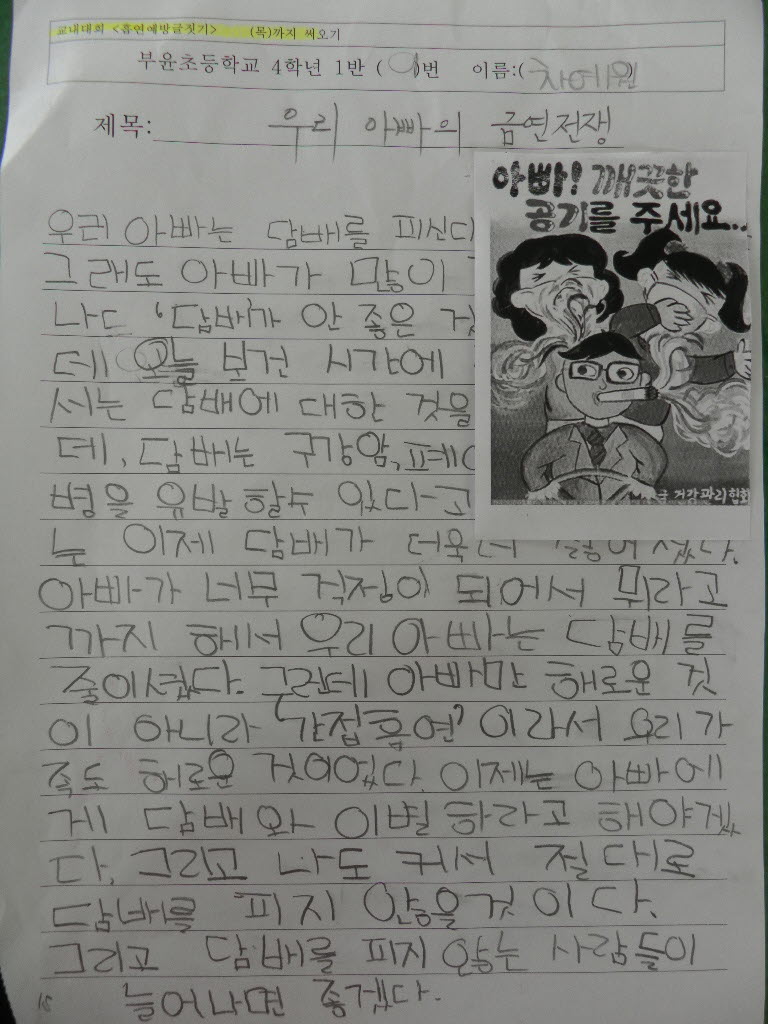 교내대회 <흡연예방글짓기> (목)까지 써오기
부윤초등학교 4학년 1반 ( )번 이름:(차예원)
제목: 우리 아빠의 금연전쟁
아빠! 깨끗한
공기를 주세요..
건강관리협회
우리 아빠는 담배를 피신다
그래도 아빠가 많이
나드 '담배'가 안 좋은
데 오늘 보건 시간에
서는 담배에 대한 것을
데, 담배는 구강암,
병을 유발 할수 있다고
는 이제 담배가 더욱더
아빠가 너무 걱정이 되어서 뭐라고
까지 해서 우리 아빠는 담배를
줄이셨다. 그런데 아빠만 해로운 것
이 아니라 '간접흡연' 이라서 우리 가
족도 해로운 것이였다. 이제는 아빠에
게 담배와 이별 하라고 해야겠
다. 그리고 나도 커서 절대로
담배를 피지 않을것 이다.
그리고 담배를 피지 않는 사람들이
늘어나면 좋겠다.